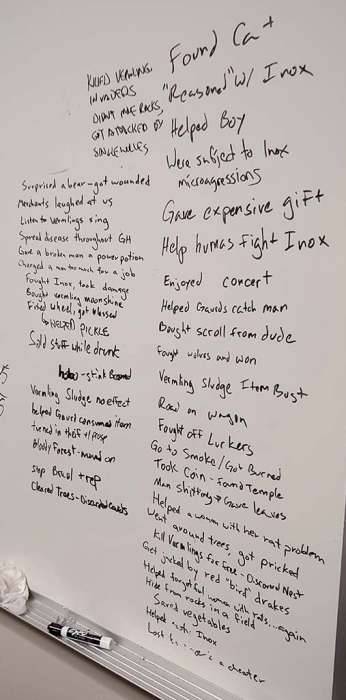 KILLED VERMLING
INVADERS
DIDN'T MAKE RACKS,
GOT ATTACKED BY
Surprised a bear - got wounded
Merchants laughed at us
Listen to Vermlings sing
Spread disease throughout GH
Gave a broken man a power potion
Charged a man too much for a job
Fought Inox, took damage
Bought vermling moonshine
Fixed wheel, got blessed
↳ HELPED PICKLE
Sold stuff while drunk
hobo - stink Bombed
Vermling Sludge no effect
helped Guard consumed item
turned in thief +1 rep
Bloody Forest - moved on
stop Brawl + rep
Cleared Trees - Discarded Cards
Found Cat
"Reasoned" w/ Inox
Helped Boy
Were subject to Inox
microagressions
Gave expensive gift
Help humans fight Inox
Enjoyed concert
Helped Guards catch man
Bought scroll from dude
Fought wolves and won
Vermling Sludge Item Bust
Road on wagon
Fought off Lurkers
Go to Smoke/Got Burned
Took Coin - Found Temple
Man shitting → Gave leaves
Helped a woman with her rat problem
Went around trees, got pricked
Kill Vermlings for Free - Discovered Nest
Get jacked by red "bird" drakes
Helped forgetful woman with rats... again
Hide from rocks in a field
Saved vegetables
Helped Inox
Lost to a cheater